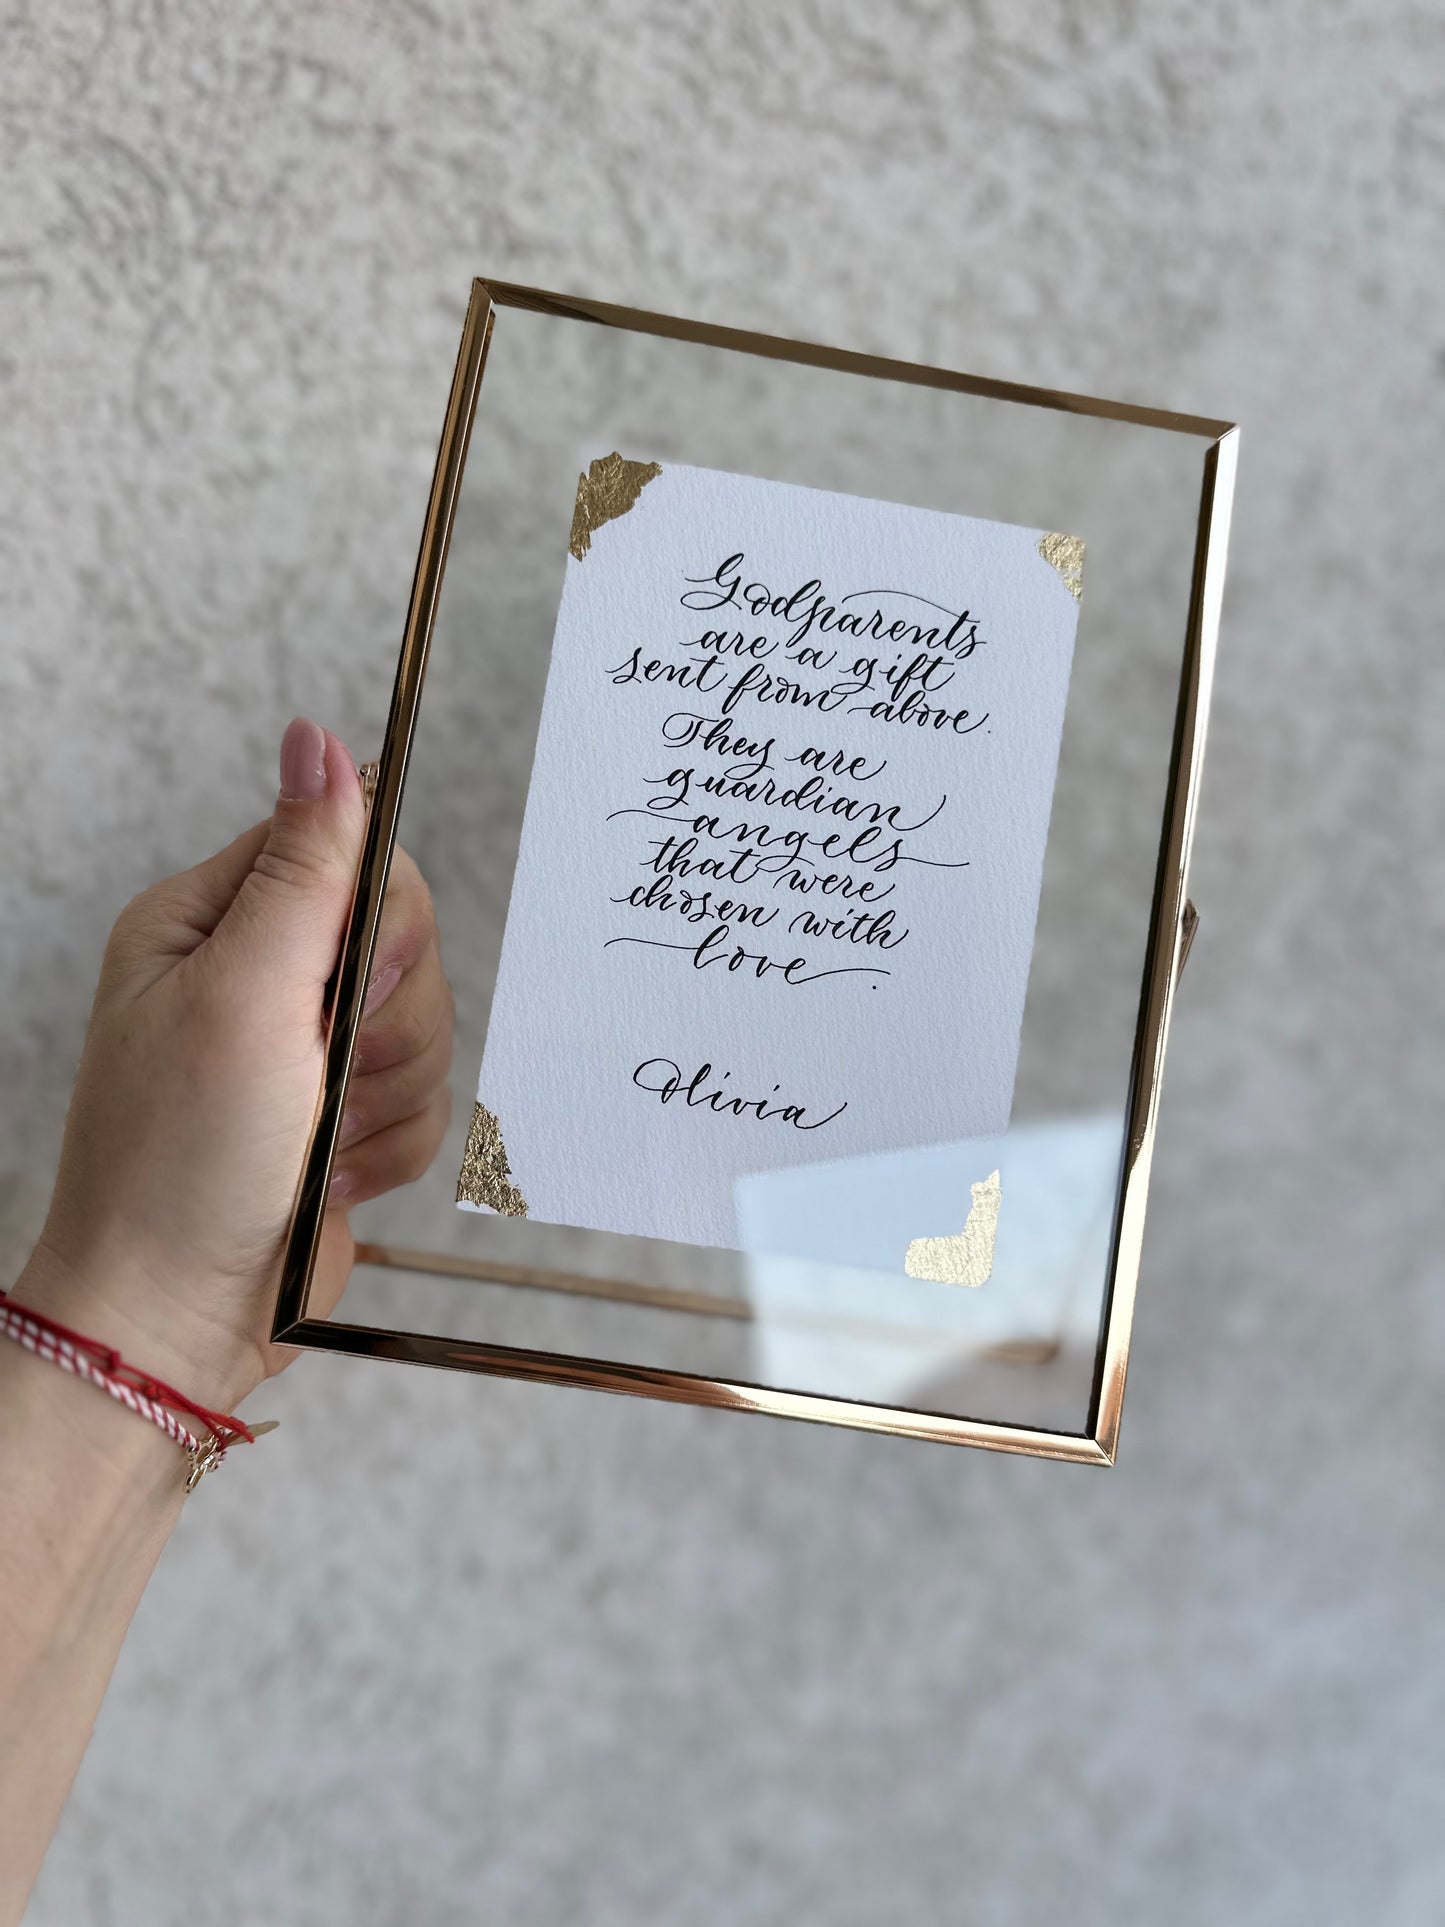 Godparents
are a gift
sent from above.
They are
guardian
angels
that were
chosen with
love.
Olivia